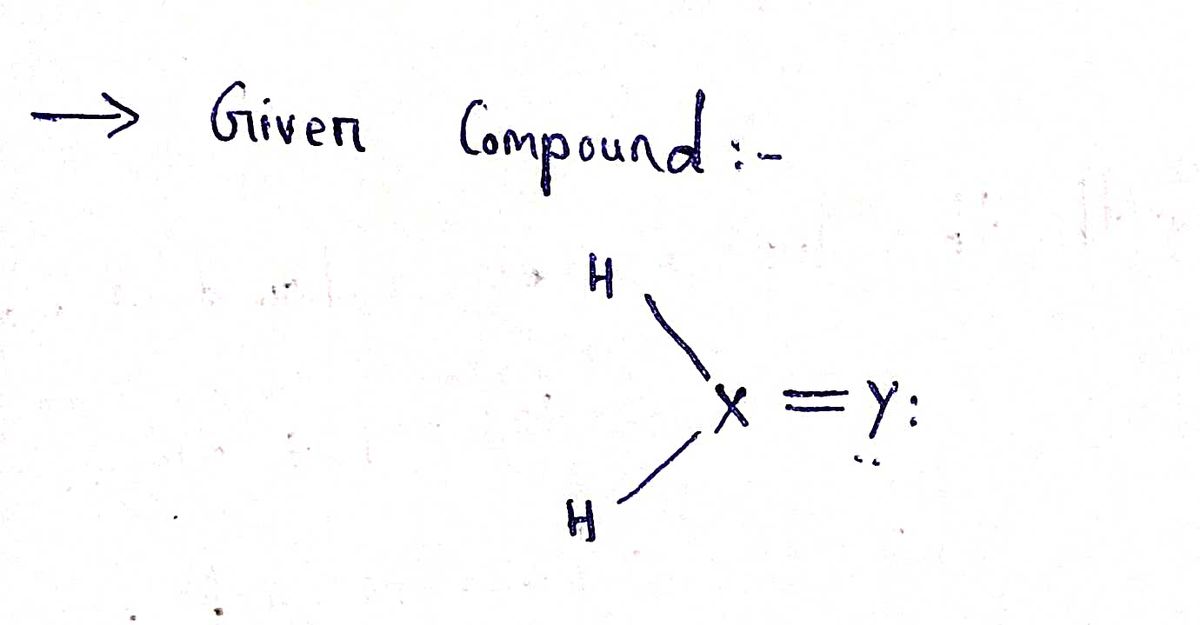 → Given Compound :-
H
X = Y:
..
H